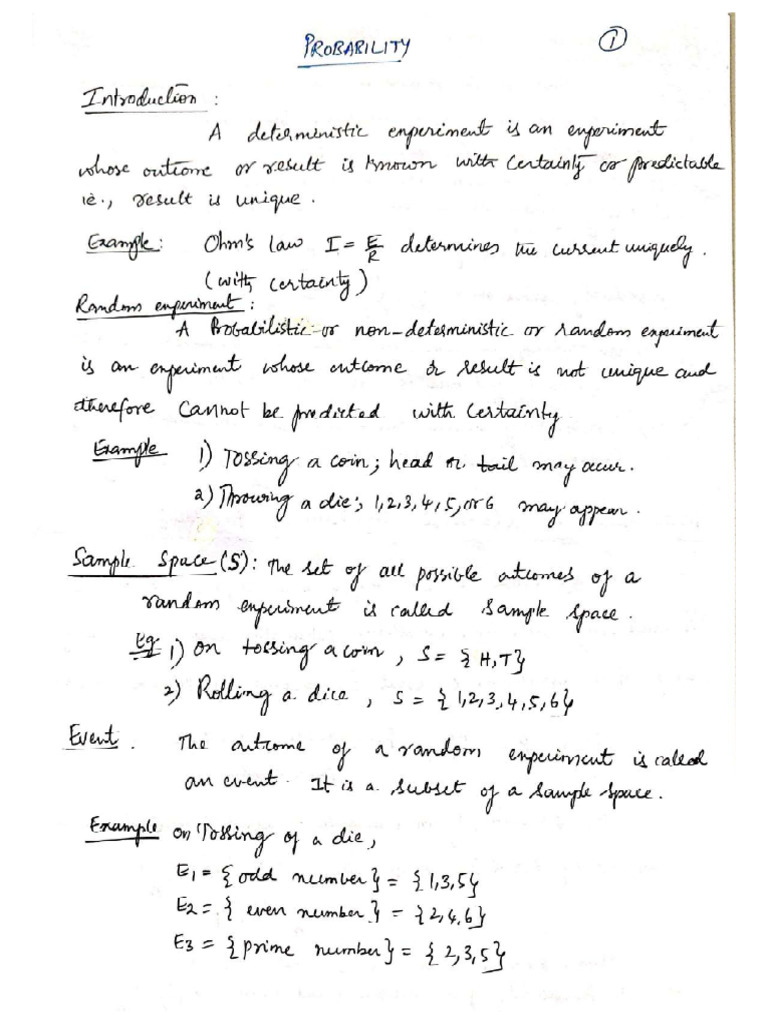 PROBABILITY
1
Introduction :
A deterministic experiment is an experiment
whose outcome or result is known with certainty or predictable
ie., result is unique.
Example : Ohm's law I = E/R determines the current uniquely.
(with certainty)
Random experiment :
A Probabilistic or non-deterministic or random experiment
is an experiment whose outcome or result is not unique and
therefore cannot be predicted with certainty
Example 1) Tossing a coin; head or tail may occur.
2) Throwing a die; 1,2,3,4,5, or 6 may appear.
Sample Space (S) : The set of all possible outcomes of a
random experiment is called sample space.
Eg 1) On tossing a coin, S = {H,T}
2) Rolling a dice, S = {1,2,3,4,5,6}
Event. The outcome of a random experiment is called
an event. It is a subset of a sample space.
Example on Tossing of a die,
E1 = {odd number} = {1,3,5}
E2 = {even number} = {2,4,6}
E3 = {prime number} = {2,3,5}